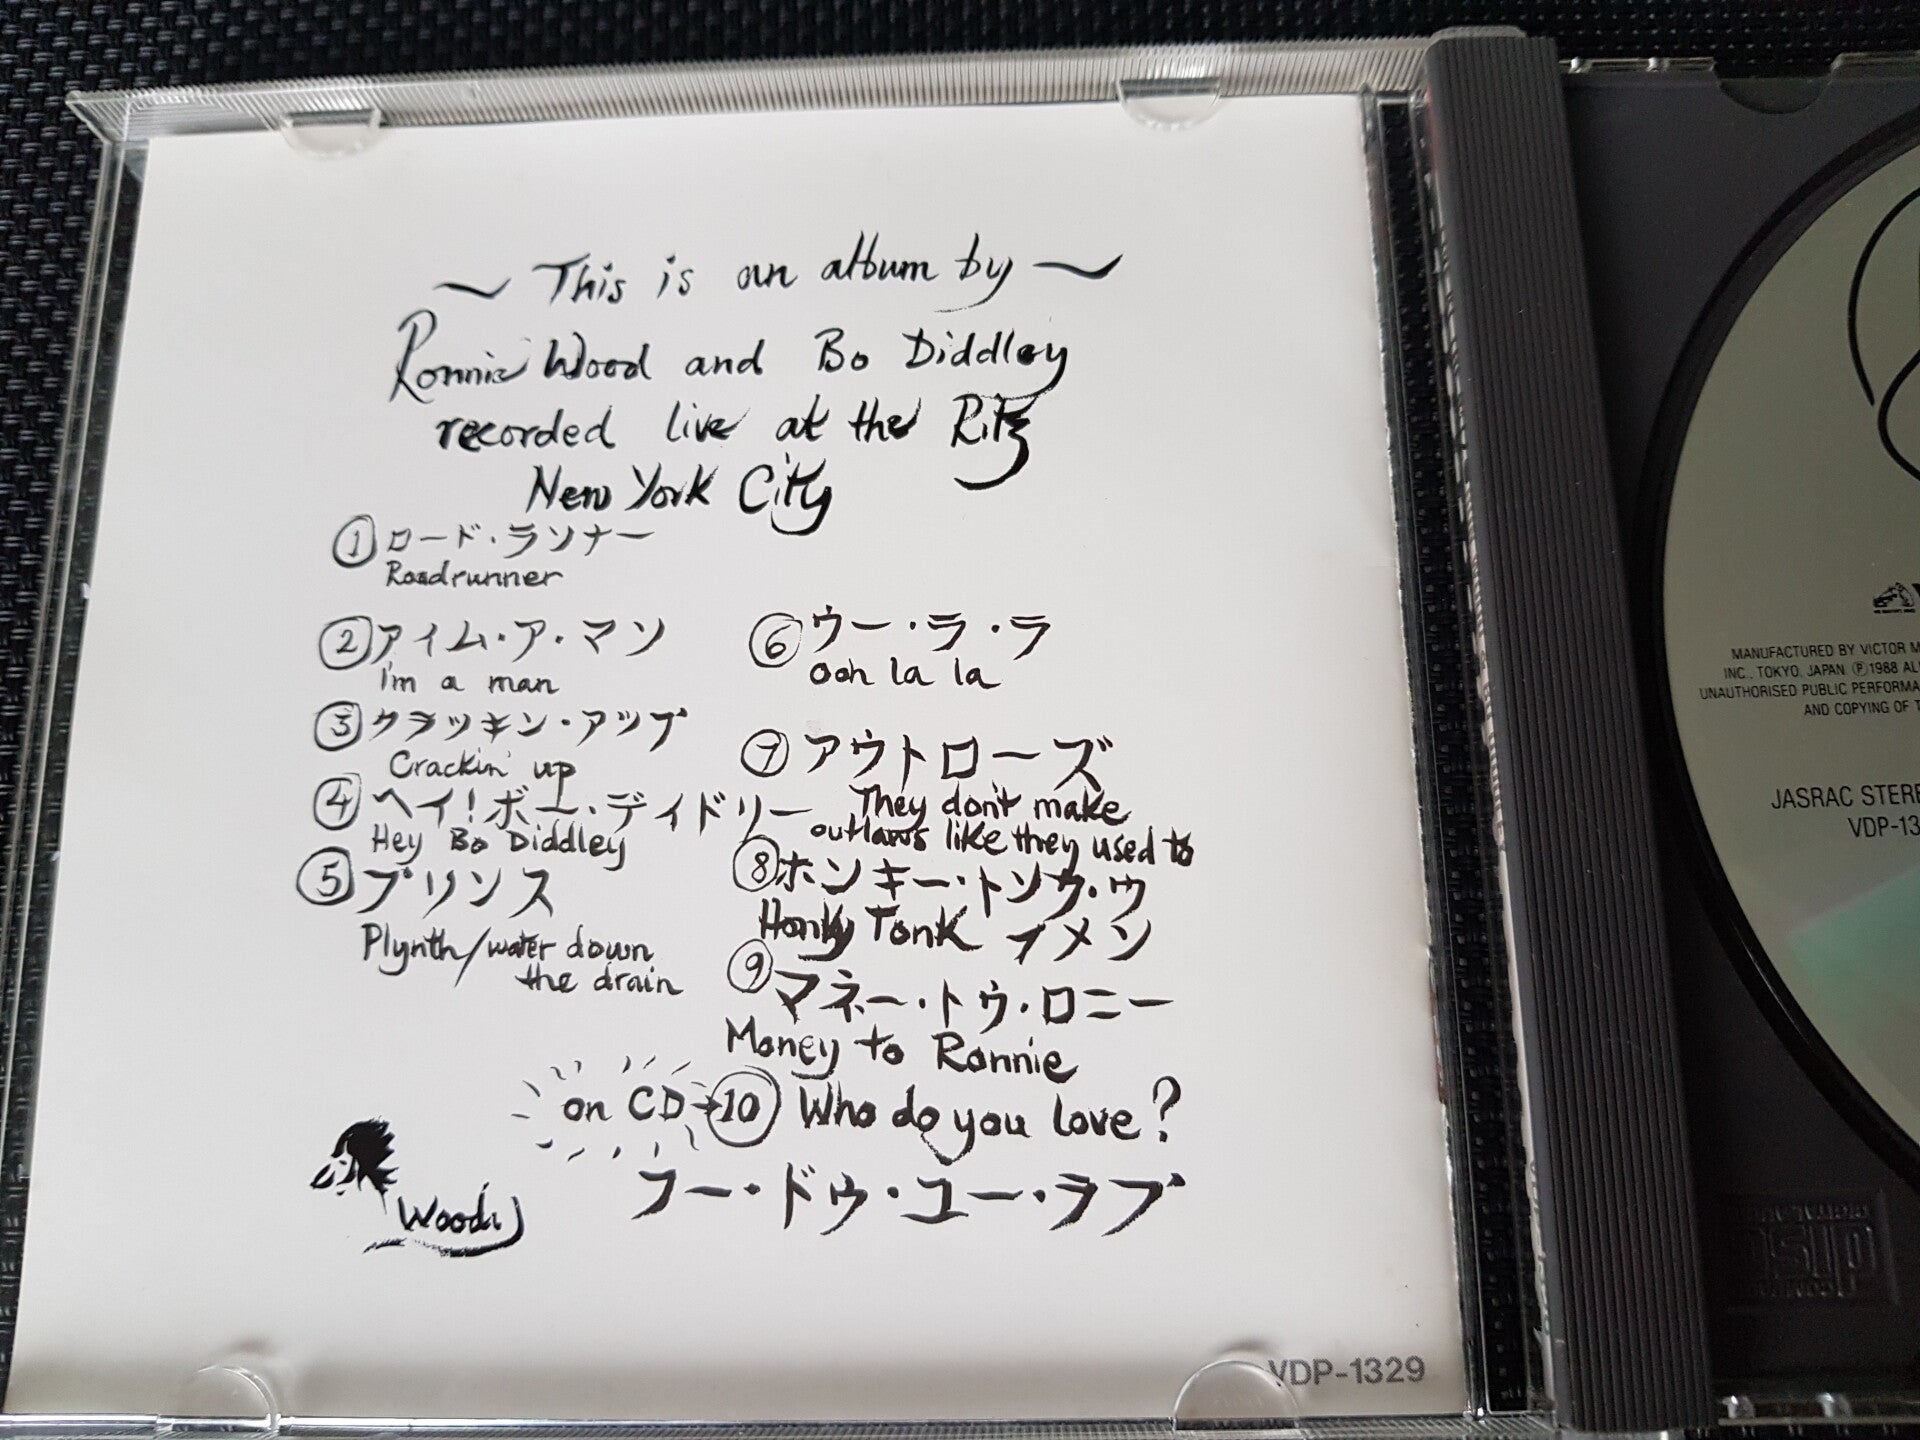 ~ This is an album by ~
Ronnie Wood and Bo Diddley
recorded live at the Ritz
New York City
① ロード・ランナー
Roadrunner
② アイム・ア・マン
I'm a man
③ クラッキン・アップ
Crackin' up
④ ヘイ!ボー・ディドリー
Hey Bo Diddley
⑤ プリンス
Plynth/water down
the drain
⑥ ウー・ラ・ラ
ooh la la
⑦ アウトローズ
They don't make
outlaws like they used to
⑧ ホンキー・トンク・ウ
Honky Tonk ィメン
⑨ マネー・トゥ・ロニー
Money to Ronnie
on CD→⑩ Who do you love?
フー・ドゥ・ユー・ラブ
Woody
VDP-1329
MANUFACTURED BY VICTOR M
INC., TOKYO, JAPAN. ℗1988 AL
UNAUTHORISED PUBLIC PERFORMA
AND COPYING OF T
JASRAC STERE
VDP-13